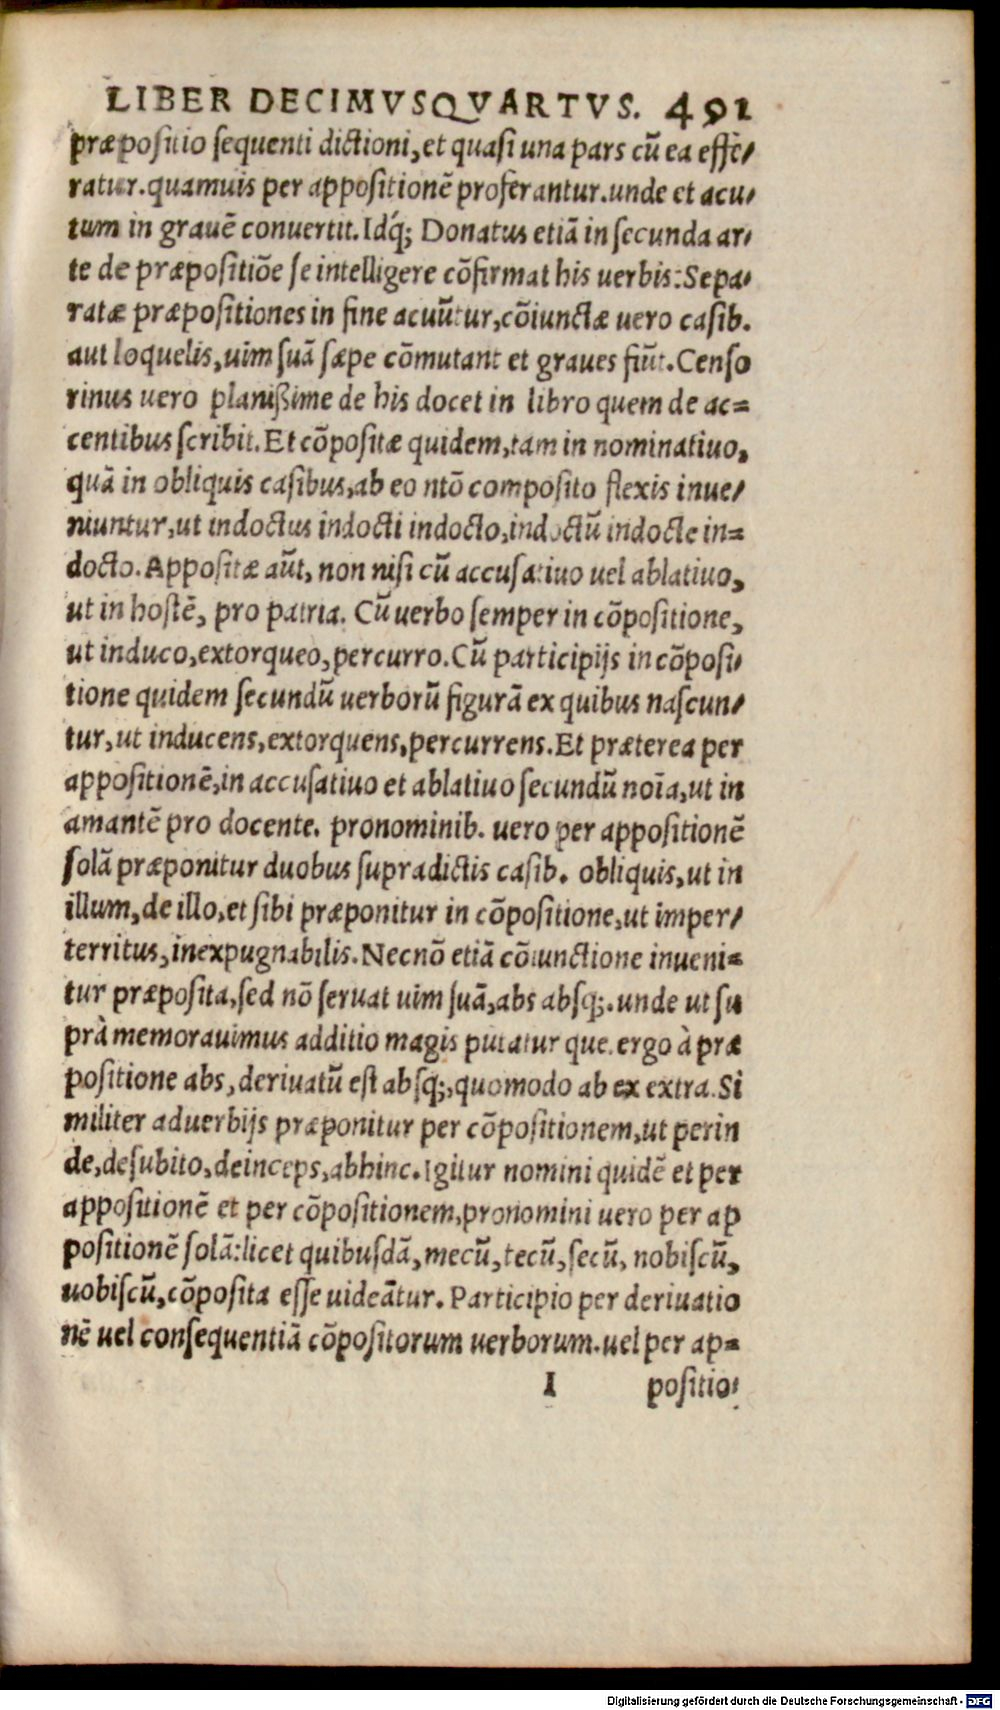 LIBER DECIMVSQVARTVS. 491
præpositio sequenti dictioni, et quasi una pars cũ ea effè-
ratur. quamuis per appositionẽ proferantur. unde et acu-
tum in grauẽ conuertit. Idq́; Donatus etiã in secunda ar-
te de præpositiõe se intelligere cõfirmat his uerbis: Sepa-
ratæ præpositiones in fine acuũtur, cõiunctæ uero casib.
aut loquelis, uim suã sæpe cõmutant et graues fiũt. Censo
rinus uero planißime de his docet in libro quem de ac=
centibus scribit. Et cõpositæ quidem, tam in nominatiuo,
quã in obliquis casibus, ab eo ntõ composito flexis inue-
niuntur, ut indoctus indocti indocto, indoctũ indocte in=
docto. Appositæ aũt, non nisi cũ accusatiuo uel ablatiuo,
ut in hostẽ, pro patria. Cũ uerbo semper in cõpositione,
ut induco, extorqueo, percurro. Cũ participijs in cõposi-
tione quidem secundũ uerborũ figurã ex quibus nascun-
tur, ut inducens, extorquens, percurrens. Et præterea per
appositionẽ, in accusatiuo et ablatiuo secundũ noĩa, ut in
amantẽ pro docente. pronominib. uero per appositionẽ
solã præponitur duobus supradictis casib. obliquis, ut in
illum, de illo, et sibi præponitur in cõpositione, ut imper-
territus, inexpugnabilis. Necnõ etiã cõiunctione inueni=
tur præposita, sed nõ seruat uim suã, abs absq;. unde ut su
prà memorauimus additio magis putatur que. ergo à præ
positione abs, deriuatũ est absq;, quomodo ab ex extra. Si
militer aduerbijs præponitur per cõpositionem, ut perin
de, desubito, deinceps, abhinc. Igitur nomini quidẽ et per
appositionẽ et per cõpositionem, pronomini uero per ap
positionẽ solã: licet quibusdã, mecũ, tecũ, secũ, nobiscũ,
uobiscũ, cõposita esse uideãtur. Participio per deriuatio
nẽ uel consequentiã cõpositorum uerborum. uel per ap=
I positio-
Digitalisierung gefördert durch die Deutsche Forschungsgemeinschaft - DFG